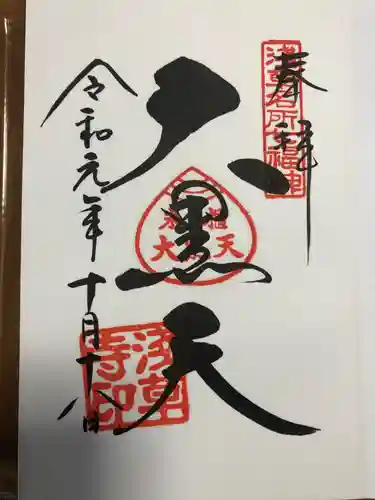 奉拝
浅草名所七福神
大黒天
令和元年十月十八日
浅草寺印